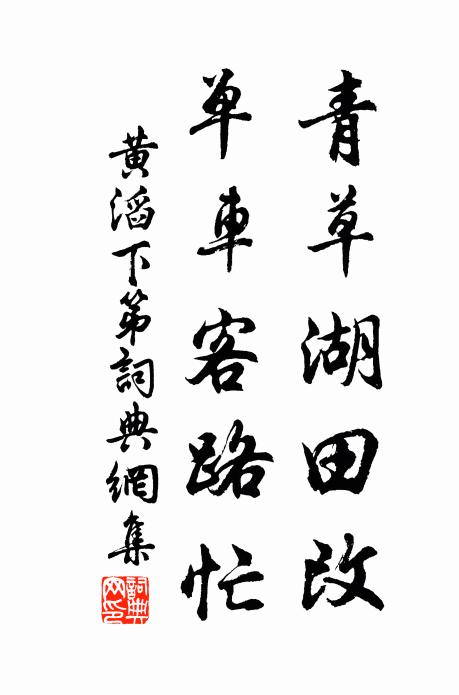 青草湖田改
單車客路忙
黄滔下第詞典網集
詞典网印